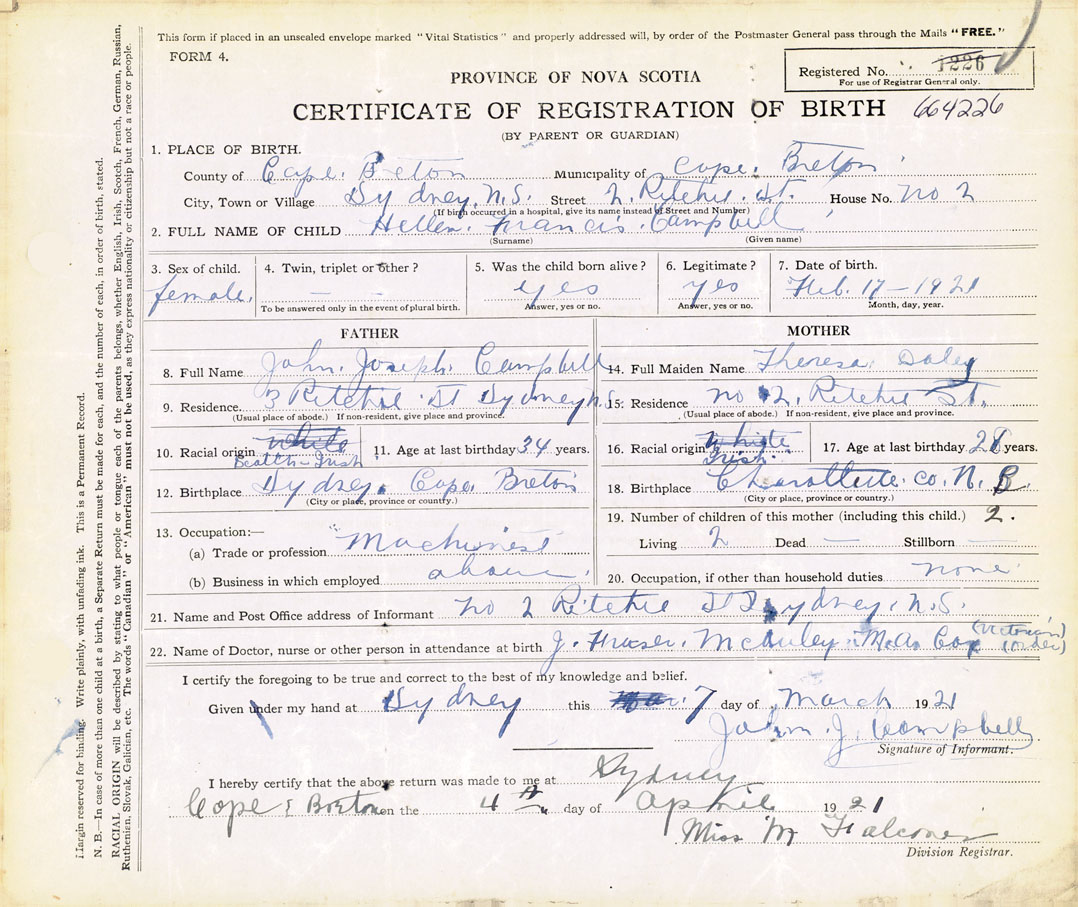 This form if placed in an unsealed envelope marked "Vital Statistics" and properly addressed will, by order of the Postmaster General pass through the Mails "FREE."
FORM 4.
Registered No. 1226
For use of Registrar General only.
PROVINCE OF NOVA SCOTIA
CERTIFICATE OF REGISTRATION OF BIRTH 664226
(BY PARENT OR GUARDIAN)
1. PLACE OF BIRTH.
County of Cape Breton Municipality of Cape Breton
City, Town or Village Sydney, N.S. Street 2 Ritchie St. House No. no 2
(If birth occurred in a hospital, give its name instead of Street and Number)
2. FULL NAME OF CHILD Hellen Francis Campbell
(Surname) (Given name)
3. Sex of child. 4. Twin, triplet or other? 5. Was the child born alive? 6. Legitimate? 7. Date of birth.
female. — — yes yes Feb. 17 – 1921
To be answered only in the event of plural birth. Answer, yes or no. Answer, yes or no. Month, day, year.
FATHER
8. Full Name John Joseph Campbell
9. Residence. 3 Ritchie St Sydney N.S.
(Usual place of abode.) If non-resident, give place and province.
10. Racial origin White 11. Age at last birthday 34 years.
Scotch-Irish
12. Birthplace Sydney, Cape Breton
(City or place, province or country.)
13. Occupation:—
(a) Trade or profession Machinest
(b) Business in which employed above
MOTHER
14. Full Maiden Name Theresa Daley
15. Residence no 2 Ritchie St.
(Usual place of abode.) If non-resident, give place and province.
16. Racial origin White 17. Age at last birthday 28 years.
Irish
18. Birthplace Charollette co. N. B.
(City or place, province or country.)
19. Number of children of this mother (including this child.) 2.
Living 2 Dead — Stillborn —
20. Occupation, if other than household duties none
21. Name and Post Office address of Informant No 2 Ritchie St Sydney, N.S.
22. Name of Doctor, nurse or other person in attendance at birth J. Fraser McAuley (Victorian Order)
I certify the foregoing to be true and correct to the best of my knowledge and belief.
Given under my hand at Sydney this 7 day of March 1921
John J. Campbell
Signature of Informant.
I hereby certify that the above return was made to me at Sydney
Cape Breton on the 4th day of April 1921
Miss M Falconer
Division Registrar.
Margin reserved for binding. Write plainly, with unfading ink. This is a Permanent Record.
N. B.—In case of more than one child at a birth, a Separate Return must be made for each, and the number of each, in order of birth, stated.
RACIAL ORIGIN will be described by stating to what people or tongue each of the parents belongs, whether English, Irish, Scotch, French, German, Russian,
Ruthenian, Slovak, Galician, etc. The words "Canadian" or "American" must not be used, as they express nationality or citizenship but not a race or people.